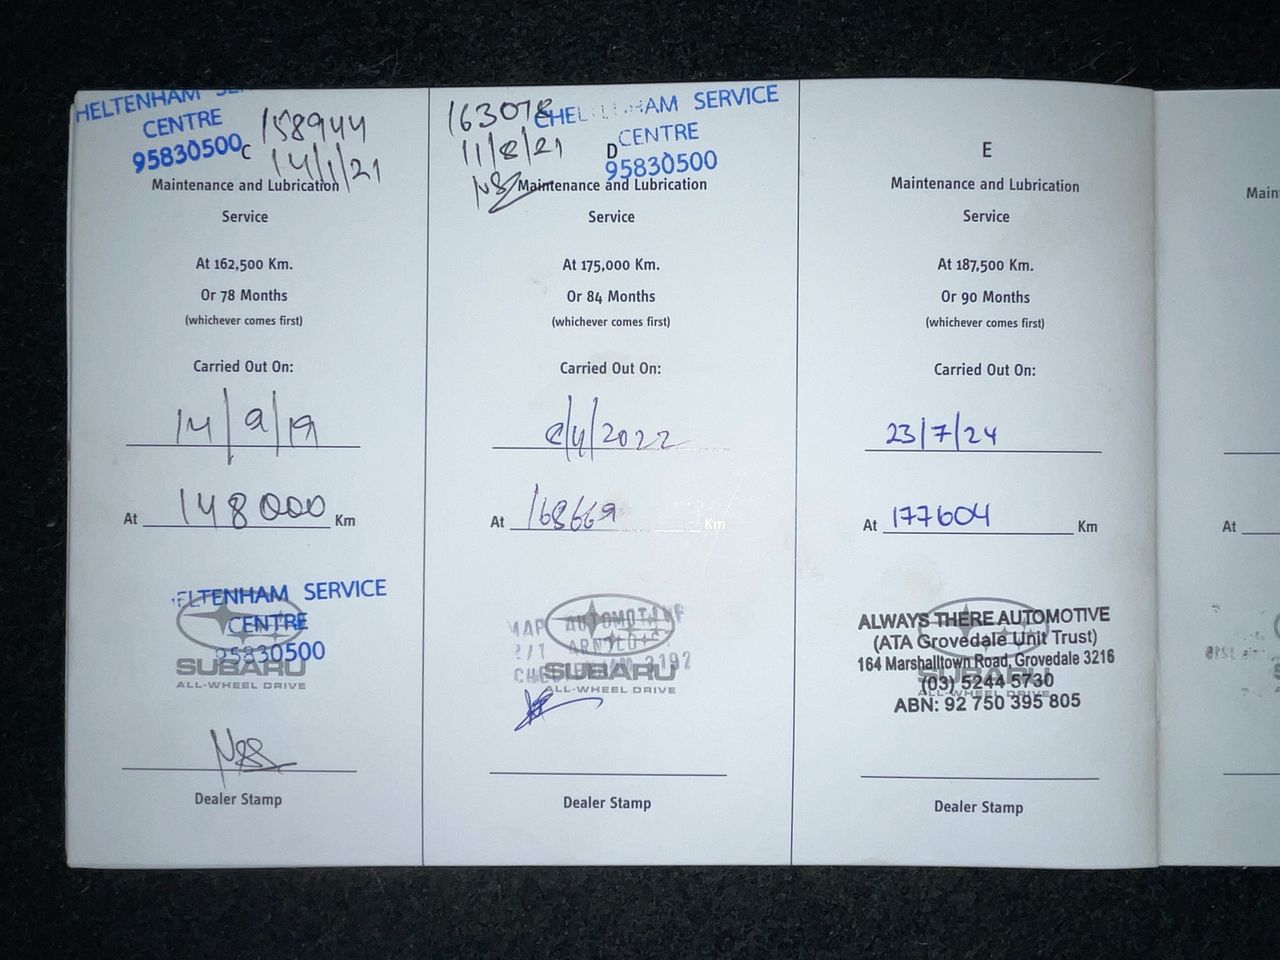 HELTENHAM SE
CENTRE
95830500
158944
14/1/21
C
Maintenance and Lubrication
Service
At 162,500 Km.
Or 78 Months
(whichever comes first)
Carried Out On:
14/9/19
At 148000 Km
ELTENHAM SERVICE
CENTRE
95830500
SUBARU
ALL-WHEEL DRIVE
Dealer Stamp
163078
11/8/21
CHEL HAM SERVICE
CENTRE
95830500
D
Maintenance and Lubrication
Service
At 175,000 Km.
Or 84 Months
(whichever comes first)
Carried Out On:
/4/2022
At 168669 Km
AUTOMOTIVE
3192
SUBARU
ALL-WHEEL DRIVE
Dealer Stamp
E
Maintenance and Lubrication
Service
At 187,500 Km.
Or 90 Months
(whichever comes first)
Carried Out On:
23/7/24
At 177604 Km
ALWAYS THERE AUTOMOTIVE
(ATA Grovedale Unit Trust)
164 Marshalltown Road, Grovedale 3216
(03) 5244 5730
ABN: 92 750 395 805
Dealer Stamp
Main
At